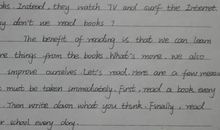 oks. Instead, they watch TV and surf the Internet.
y don't we read books?
The benefit of reading is that we can learn
re things from the books. What's more, we also
improve ourselves. Let's read. Here are a few
must be taken immediately. First, read a book every
Then write down what you think. Finally, read
r school every day.